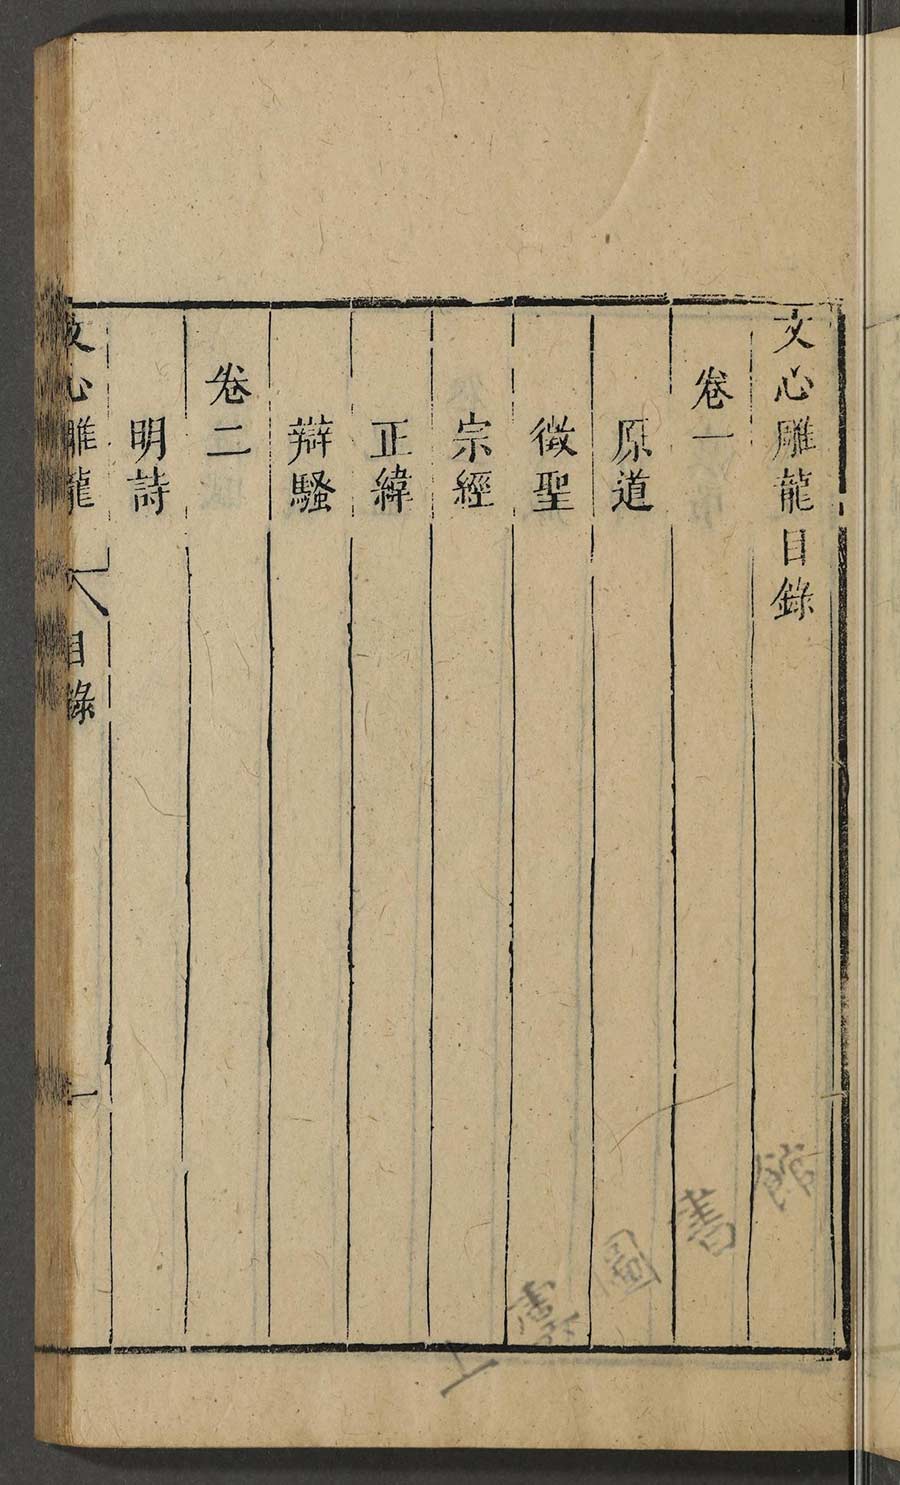 文心雕龍目錄
卷一
原道
徵聖
宗經
正緯
辯騷
卷二
明詩
文心雕龍 目錄 一
上海圖書館